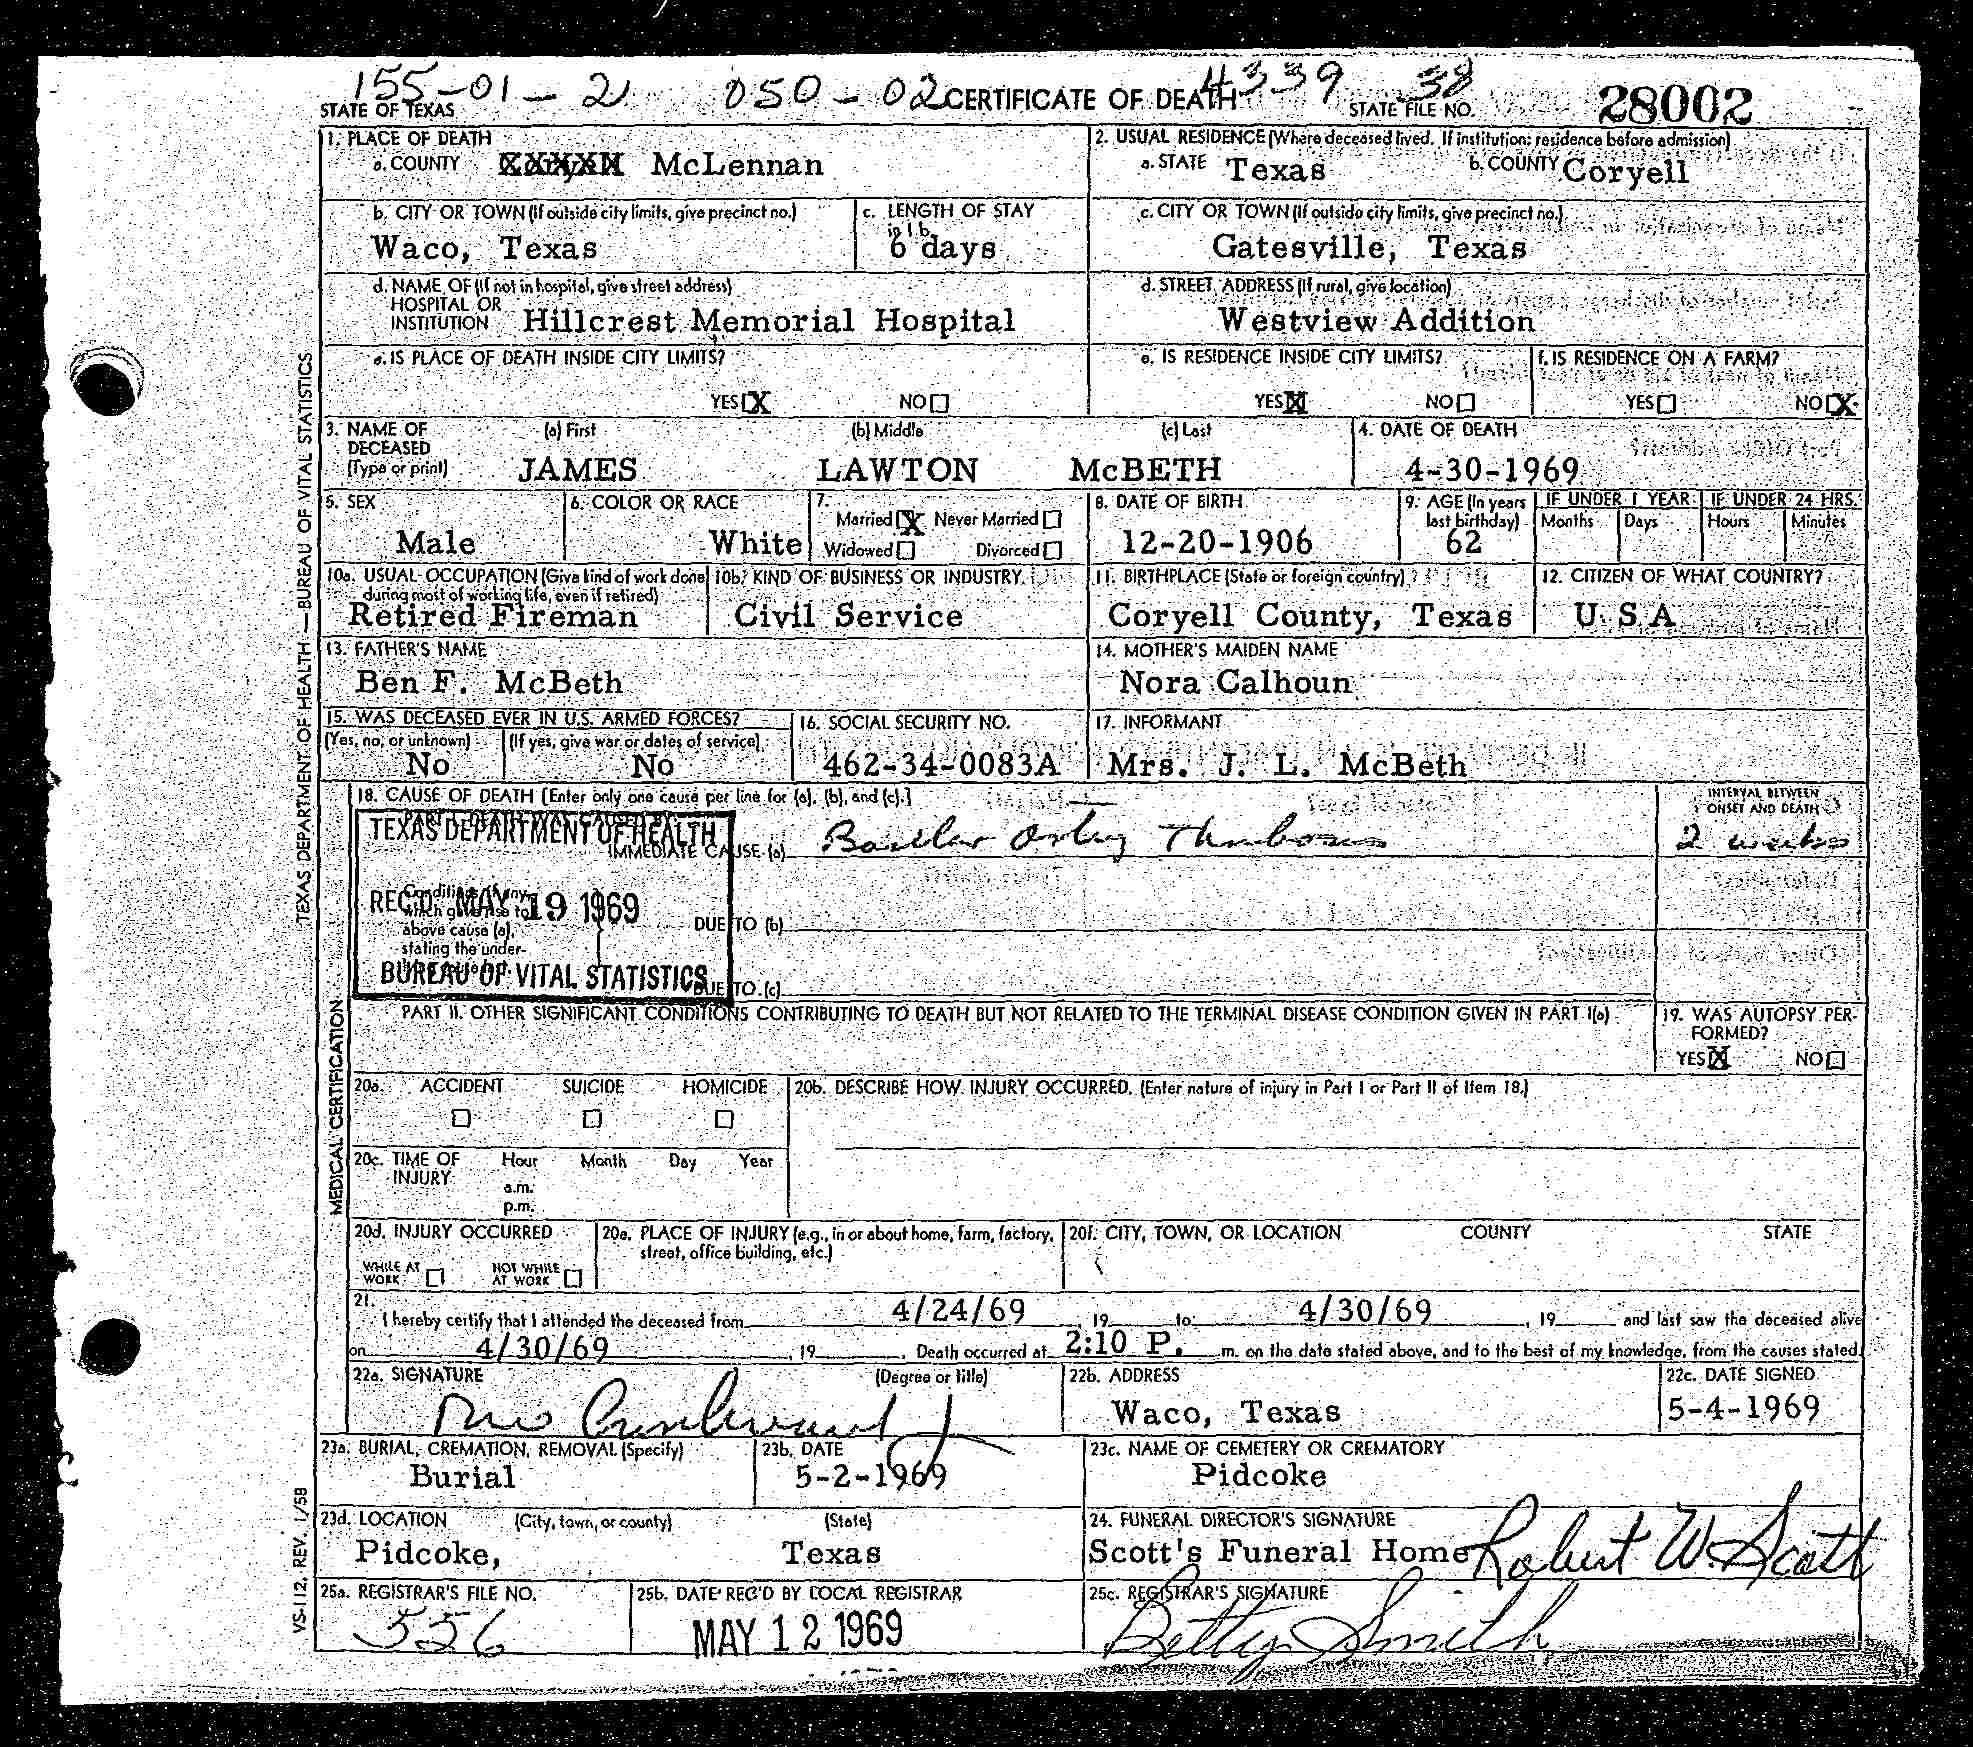 155-01-2 050-02 4339 38
STATE OF TEXAS CERTIFICATE OF DEATH STATE FILE NO. 28002
1. PLACE OF DEATH
a. COUNTY McLennan
2. USUAL RESIDENCE (Where deceased lived. If institution: residence before admission)
a. STATE Texas b. COUNTY Coryell
b. CITY OR TOWN (If outside city limits, give precinct no.)
Waco, Texas
c. LENGTH OF STAY
in 1b.
6 days
c. CITY OR TOWN (If outside city limits, give precinct no.)
Gatesville, Texas
d. NAME OF (If not in hospital, give street address)
HOSPITAL OR
INSTITUTION Hillcrest Memorial Hospital
d. STREET ADDRESS (If rural, give location)
Westview Addition
e. IS PLACE OF DEATH INSIDE CITY LIMITS?
YES X NO
e. IS RESIDENCE INSIDE CITY LIMITS?
YES X NO
f. IS RESIDENCE ON A FARM?
YES NO X
3. NAME OF (a) First (b) Middle (c) Last
DECEASED
(Type or print) JAMES LAWTON McBETH
4. DATE OF DEATH
4-30-1969
5. SEX
Male
6. COLOR OR RACE
White
7.
Married X Never Married
Widowed Divorced
8. DATE OF BIRTH
12-20-1906
9. AGE (In years
last birthday)
62
IF UNDER 1 YEAR IF UNDER 24 HRS.
Months Days Hours Minutes
10a. USUAL OCCUPATION (Give kind of work done
during most of working life, even if retired)
Retired Fireman
10b. KIND OF BUSINESS OR INDUSTRY
Civil Service
11. BIRTHPLACE (State or foreign country)
Coryell County, Texas
12. CITIZEN OF WHAT COUNTRY?
U S A
13. FATHER'S NAME
Ben F. McBeth
14. MOTHER'S MAIDEN NAME
Nora Calhoun
15. WAS DECEASED EVER IN U.S. ARMED FORCES?
(Yes, no, or unknown) (If yes, give war or dates of service)
No No
16. SOCIAL SECURITY NO.
462-34-0083A
17. INFORMANT
Mrs. J. L. McBeth
18. CAUSE OF DEATH [Enter only one cause per line for (a), (b), and (c).]
INTERVAL BETWEEN
ONSET AND DEATH
PART I. DEATH WAS CAUSED BY:
IMMEDIATE CAUSE (a) Basilar Artery Thrombosis 2 weeks
Conditions, if any,
which gave rise to
above cause (a),
stating the under-
DUE TO (b)
DUE TO (c)
TEXAS DEPARTMENT OF HEALTH
REC'D. MAY 19 1969
BUREAU OF VITAL STATISTICS
PART II. OTHER SIGNIFICANT CONDITIONS CONTRIBUTING TO DEATH BUT NOT RELATED TO THE TERMINAL DISEASE CONDITION GIVEN IN PART I(a)
19. WAS AUTOPSY PER-
FORMED?
YES X NO
20a. ACCIDENT SUICIDE HOMICIDE
20b. DESCRIBE HOW INJURY OCCURRED. (Enter nature of injury in Part I or Part II of Item 18.)
20c. TIME OF Hour Month Day Year
INJURY
a.m.
p.m.
20d. INJURY OCCURRED
WHILE AT WORK NOT WHILE AT WORK
20e. PLACE OF INJURY (e.g., in or about home, farm, factory,
street, office building, etc.)
20f. CITY, TOWN, OR LOCATION COUNTY STATE
21.
I hereby certify that I attended the deceased from 4/24/69, 19 to 4/30/69, 19 and last saw the deceased alive
on 4/30/69, 19. Death occurred at 2:10 P. m. on the date stated above, and to the best of my knowledge, from the causes stated.
22a. SIGNATURE (Degree or title)
22b. ADDRESS
Waco, Texas
22c. DATE SIGNED
5-4-1969
23a. BURIAL, CREMATION, REMOVAL (Specify)
Burial
23b. DATE
5-2-1969
23c. NAME OF CEMETERY OR CREMATORY
Pidcoke
23d. LOCATION (City, town, or county) (State)
Pidcoke, Texas
24. FUNERAL DIRECTOR'S SIGNATURE
Scott's Funeral Home Robert W. Scott
25a. REGISTRAR'S FILE NO.
556
25b. DATE REC'D BY LOCAL REGISTRAR
MAY 12 1969
25c. REGISTRAR'S SIGNATURE
Betty Smith
TEXAS DEPARTMENT OF HEALTH — BUREAU OF VITAL STATISTICS
MEDICAL CERTIFICATION
VS-112, REV. 1/58